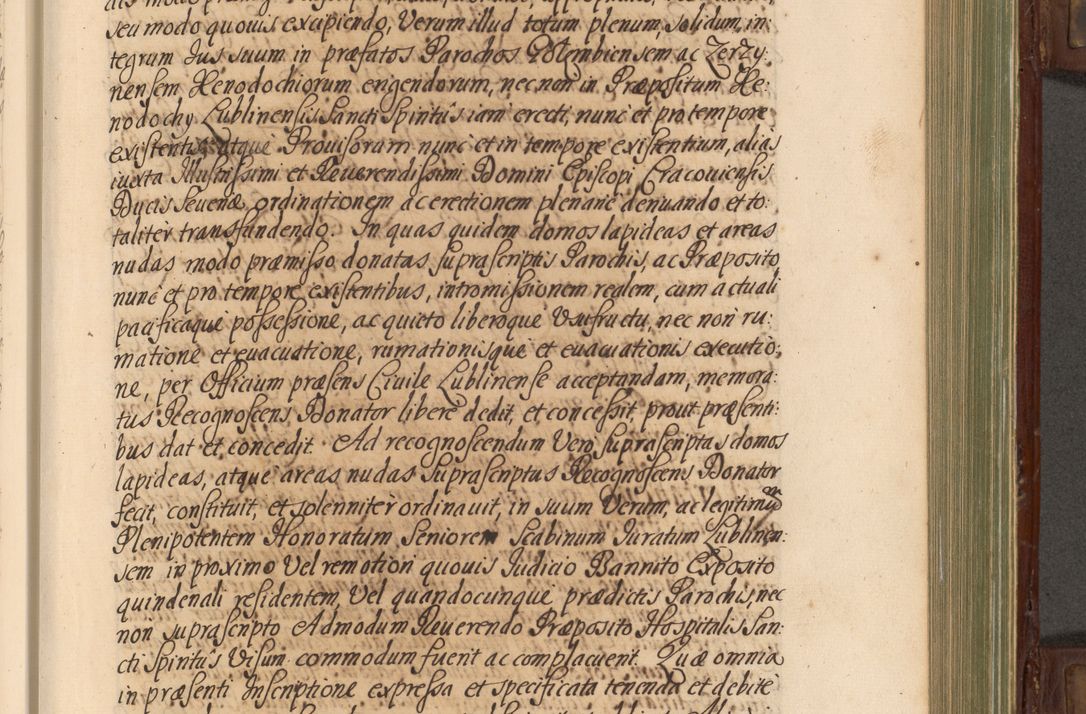 seu modo quouis excipiendo, Verum illud totum plenum, solidum, in:
tegrum Jus suum in præfatos Parochos Gołembiensem ac Zerzy:
nensem Xenodochiorum erigendorum, nec non in Præpositum Xe:
nodochy Lublinensis Sancti Spiritûs iam erecti, nunc et pro tempore
existentis, atque Prouisorum nunc et in tempore existentium, alias
iuxta Illustrissimi et Reuerendissimi Domini Episcopi Cracouiensis
Ducis Seueriæ ordinationem ac erectionem plenariè denuando et to:
taliter transfundendo. In quas quidem domos lapideas et areas
nudas modo præmisso donatas suprascriptis Parochis, ac Præposito
nunc et pro tempore existentibus, intromissionem realem, cum actuali
pacificaque possessione, ac quieto liberoque Usufructu, nec non ru:
matione et euacuatione, rumationisque et euacuationis executio:
ne, per Officium præsens Ciuile Lublinense acceptandam, memora:
tus Recognoscens Donator liberè dedit, et concessit prout præsenti:
bus dat et concedit. Ad recognoscendum Vero suprascriptas domos
lapideas, atque areas nudas Suprascriptus Recognoscens Donator
fecit, constituit, et solenniter ordinauit, in suum Verum, ac legitimum
Plenipotentem Honoratum Seniorem Scabinum Juratum Lublinen:
sem in proximo Vel remotiori quouis Judicio Bannito Exposito
quindenali residentem, Vel quandocunque prædictis Parochis, nec
non suprascripto Admodum Reuerendo Præposito Hospitalis San:
cti Spiritûs Visum commodum fuerit ac complacuerit. Quæ omnia
in præsenti Inscriptione expressa et specificata tenenda et debitè